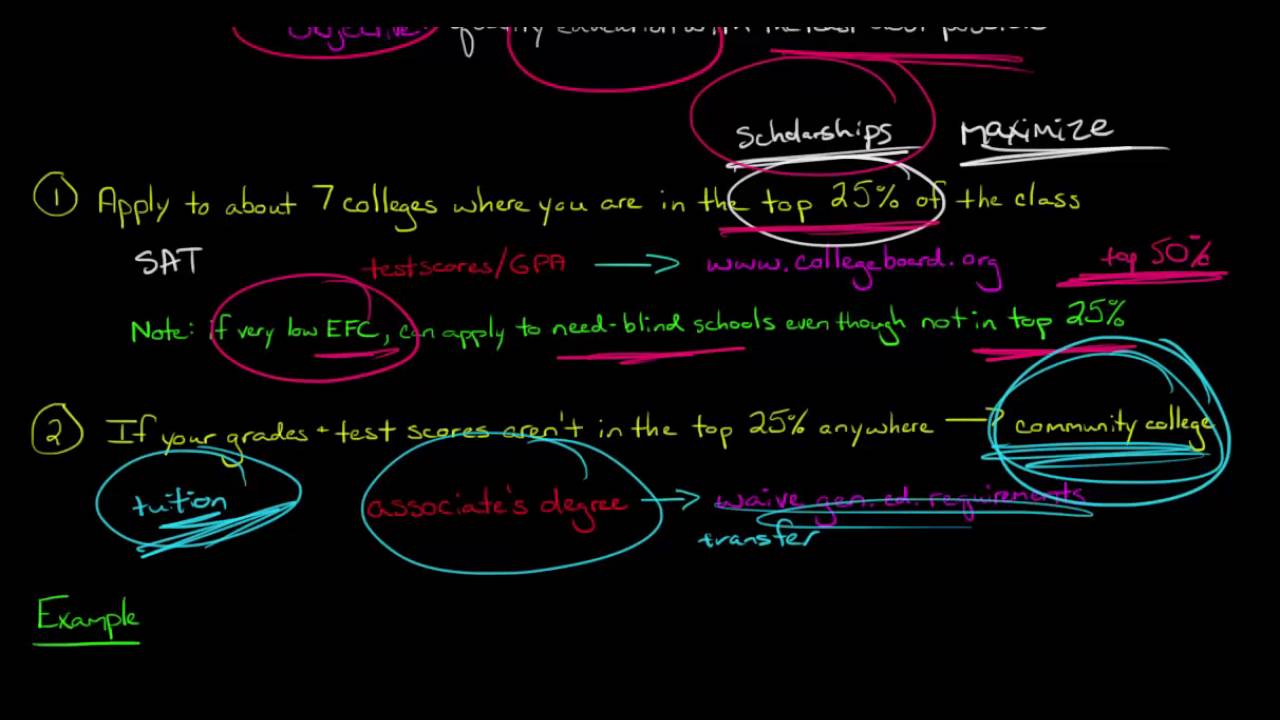 quality education with the least cost possible
Scholarships Maximize
① Apply to about 7 colleges where you are in the top 25% of the class
SAT testscores/GPA → www.collegeboard.org top 50%
Note: if very low EFC, can apply to need-blind schools even though not in top 25%
② If your grades + test scores aren't in the top 25% anywhere → community college
tuition associate's degree → waive gen. ed. requirements
transfer
Example